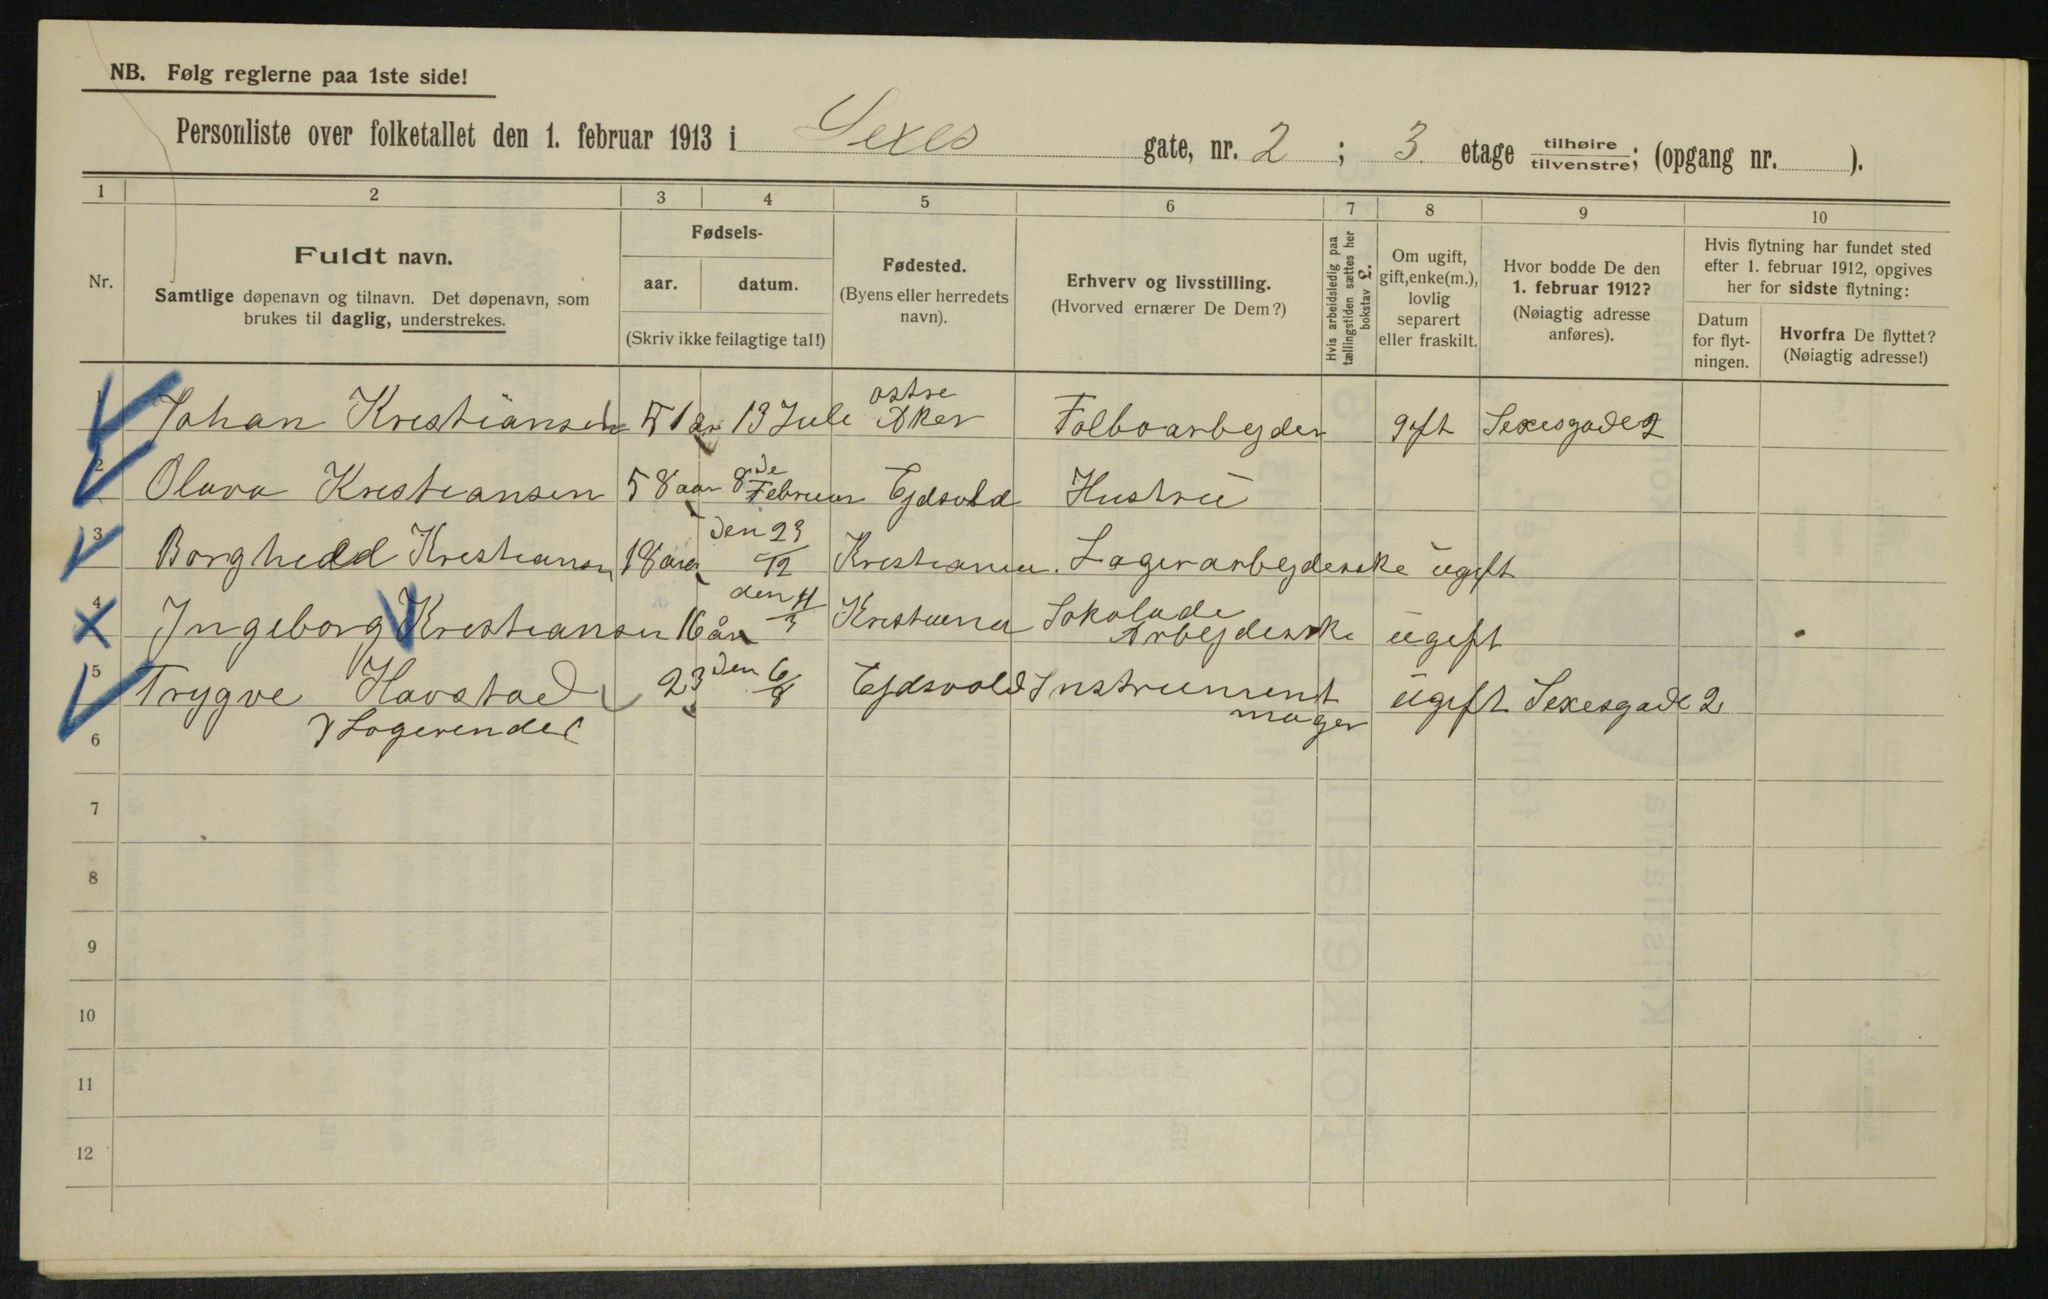 NB. Følg reglerne paa 1ste side!
Personliste over folketallet den 1. februar 1913 i Sexes gate, nr. 2 ; 3. etage tilhøire/tilvenstre; (opgang nr. ).
1 2 3 4 5 6 7 8 9 10
Nr.
Fuldt navn.
Samtlige døpenavn og tilnavn. Det døpenavn, som
brukes til daglig, understrekes.
Fødsels-
aar. datum.
(Skriv ikke feilagtige tal!)
Fødested.
(Byens eller herredets
navn).
Erhverv og livsstilling.
(Hvorved ernærer De Dem?)
Hvis arbeidsledig paa
tællingstiden sættes her
bokstav L.
Om ugift,
gift, enke(m.),
lovlig
separert
eller fraskilt.
Hvor bodde De den
1. februar 1912?
(Nøiagtig adresse
anføres).
Hvis flytning har fundet sted
efter 1. februar 1912, opgives
her for sidste flytning:
Datum
for flyt-
ningen.
Hvorfra De flyttet?
(Nøiagtig adresse!)
1 Johan Kristiansen 51 år 13 Juli østre Aker Folboarbejder gift Sexesgade 2
2 Olava Kristiansen 58 aar 8de Februar Ejdsvold Hustrü
3 Borghild Kristiansen 18 aar den 23/12 Kristiania Lagerarbejderske ügift
4 Ingeborg Kristiansen 16 år den 11/3 Kristiania Sokolade Arbejderske ügift
5 Trygve Havstad 23 den 6/8 Ejdsvold Instrument mager ügift Sexesgade 2
6 Logerende
7
8
9
10
11
12